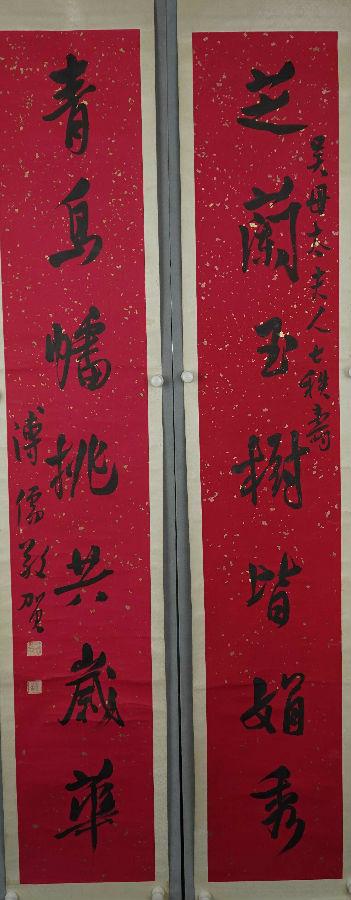 吴母太夫人七秩壽
芝蘭玉樹皆娟秀
青鳥幡桃共歲華
溥儒敬賀